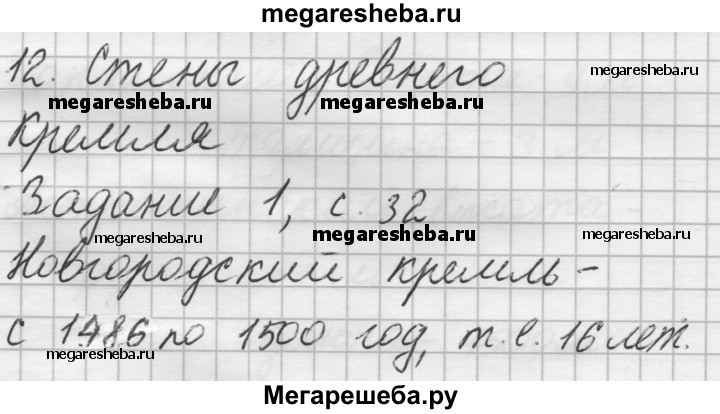 megaresheba.ru
12. Стены древнего
megaresheba.ru
megaresheba.ru
megaresheba.ru
Кремля
Задание 1, с. 32
megaresheba.ru
megaresheba.ru
megaresheba.ru
Новгородский кремль -
с 1486 по 1500 год, т.е. 16 лет.
megaresheba.ru
Мегарешеба.ру